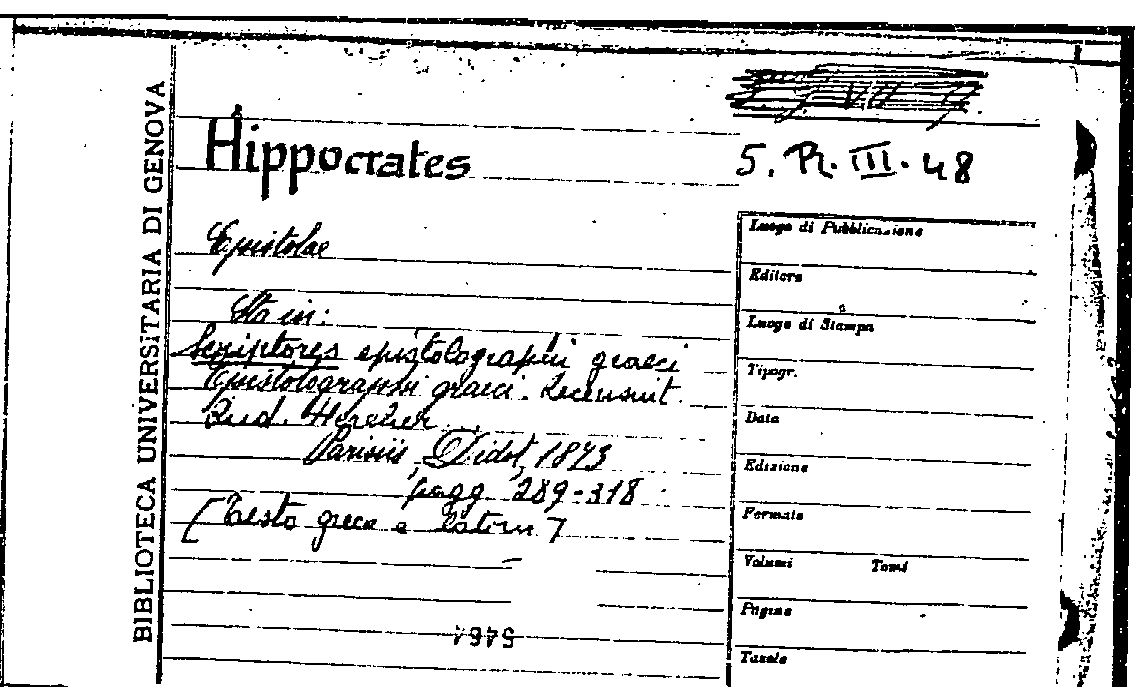 BIBLIOTECA UNIVERSITARIA DI GENOVA
Hippocrates
5. R. III. 48
Epistolae
Sta in:
Scriptores epistolographi graeci
Epistolographi graeci. Recensuit
Rud. Hercher
Parisiis, Didot, 1873
pagg 289-318
[Testo greco e latino]
5464
Luogo di Pubblicazione
Editore
Luogo di Stampa
Tipogr.
Data
Edizione
Formato
Volumi Tomi
Pagine
Tavole